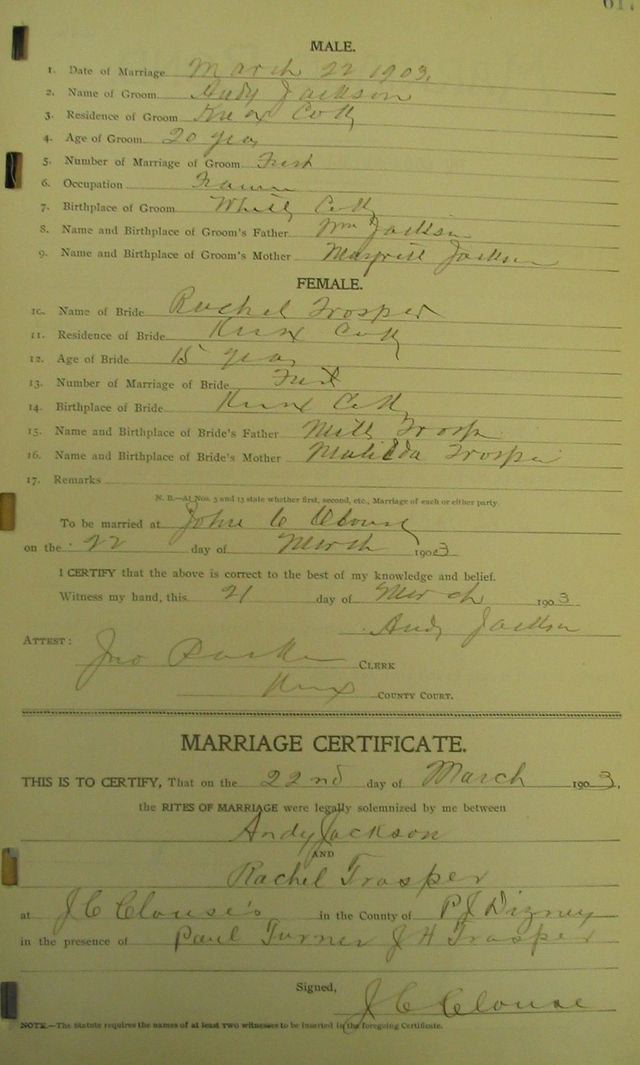 MALE.
1. Date of Marriage March 22 1903.
2. Name of Groom Andy Jackson
3. Residence of Groom Knox Co Ky
4. Age of Groom 20 years
5. Number of Marriage of Groom First
6. Occupation
7. Birthplace of Groom Co Ky
8. Name and Birthplace of Groom's Father Wm Jackson
9. Name and Birthplace of Groom's Mother Jackson
FEMALE.
10. Name of Bride Rachel Trosper
11. Residence of Bride Knox Co Ky
12. Age of Bride 15 years
13. Number of Marriage of Bride First
14. Birthplace of Bride Knox Co Ky
15. Name and Birthplace of Bride's Father
16. Name and Birthplace of Bride's Mother Matilda Trosper
17. Remarks
N. B.—At Nos. 5 and 13 state whether first, second, etc., Marriage of each or either party.
To be married at John C Clouse
on the 22 day of March 1903
I CERTIFY that the above is correct to the best of my knowledge and belief.
Witness my hand, this 21 day of March 1903
Andy Jackson
ATTEST: Jno CLERK
Knox COUNTY COURT.
MARRIAGE CERTIFICATE.
THIS IS TO CERTIFY, That on the 22nd day of March 1903,
the RITES OF MARRIAGE were legally solemnized by me between
Andy Jackson
AND
Rachel Trosper
at J C Clouse's in the County of P J Dizney
in the presence of Paul Turner J H Trosper
Signed,
J C Clouse
NOTE.—The Statute requires the names of at least two witnesses to be inserted in the foregoing Certificate.